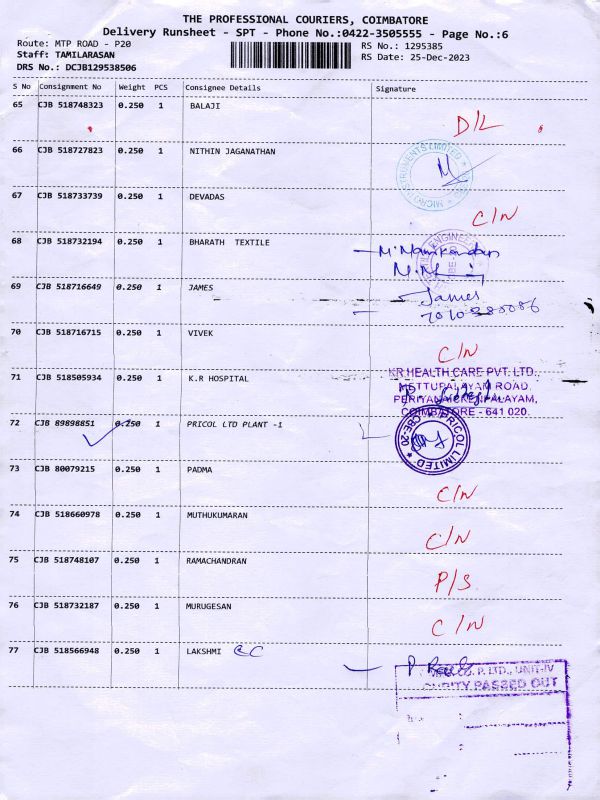 THE PROFESSIONAL COURIERS, COIMBATORE
Delivery Runsheet - SPT - Phone No.:0422-3505555 - Page No.:6
Route: MTP ROAD - P20
RS No.: 1295385
Staff: TAMILARASAN
RS Date: 25-Dec-2023
DRS No.: DCJB129538506
S No Consignment No Weight PCS Consignee Details Signature
65 CJB 518748323 0.250 1 BALAJI D/L
66 CJB 518727823 0.250 1 NITHIN JAGANATHAN
67 CJB 518733739 0.250 1 DEVADAS C/N
68 CJB 518732194 0.250 1 BHARATH TEXTILE M. Manikandan
69 CJB 518716649 0.250 1 JAMES James
70 CJB 518716715 0.250 1 VIVEK C/N
71 CJB 518505934 0.250 1 K.R HOSPITAL
KR HEALTH CARE PVT. LTD.,
METTUPALAYAM ROAD,
PERIYANAICKENPALAYAM,
COIMBATORE - 641 020.
72 CJB 89898851 0.250 1 PRICOL LTD PLANT -1
PRICOL LIMITED CBE-20
73 CJB 80079215 0.250 1 PADMA C/N
74 CJB 518660978 0.250 1 MUTHUKUMARAN C/N
75 CJB 518748107 0.250 1 RAMACHANDRAN P/S
76 CJB 518732187 0.250 1 MURUGESAN C/N
77 CJB 518566948 0.250 1 LAKSHMI CC
CO. P. LTD., UNIT-IV
PASSED OUT